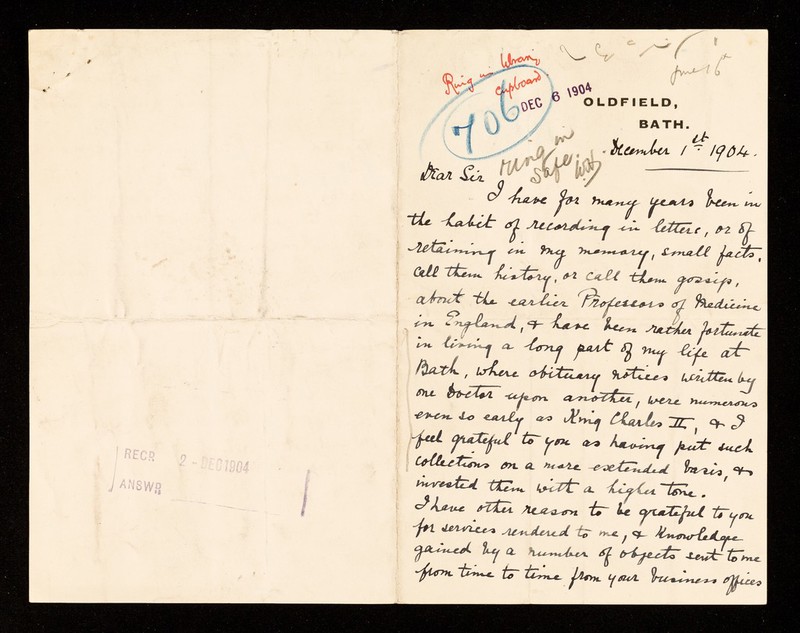 RECR 2 - DEC 1904
ANSWR
Ring in library
cupboard
706
DEC 6 1904
June 16th
OLDFIELD,
BATH.
ring in
safe.
December 1st 1904.
Dear Sir
I have for many years been in
the habit of recording in letters, or of
retaining in my memory, small facts,
call them history, or call them gossip,
about the earlier Professors of Medicine
in England, & have been rather fortunate
in living a long part of my life at
Bath, where obituary notices written by
one Doctor upon another, were numerous
even so early as King Charles II, & I
feel grateful to you as having put such
collections on a more extended basis, &
invested them with a higher tone.
I have other reason to be grateful to you
for services rendered to me, & Knowledge
gained by a number of objects sent to me
from time to time from your business offices